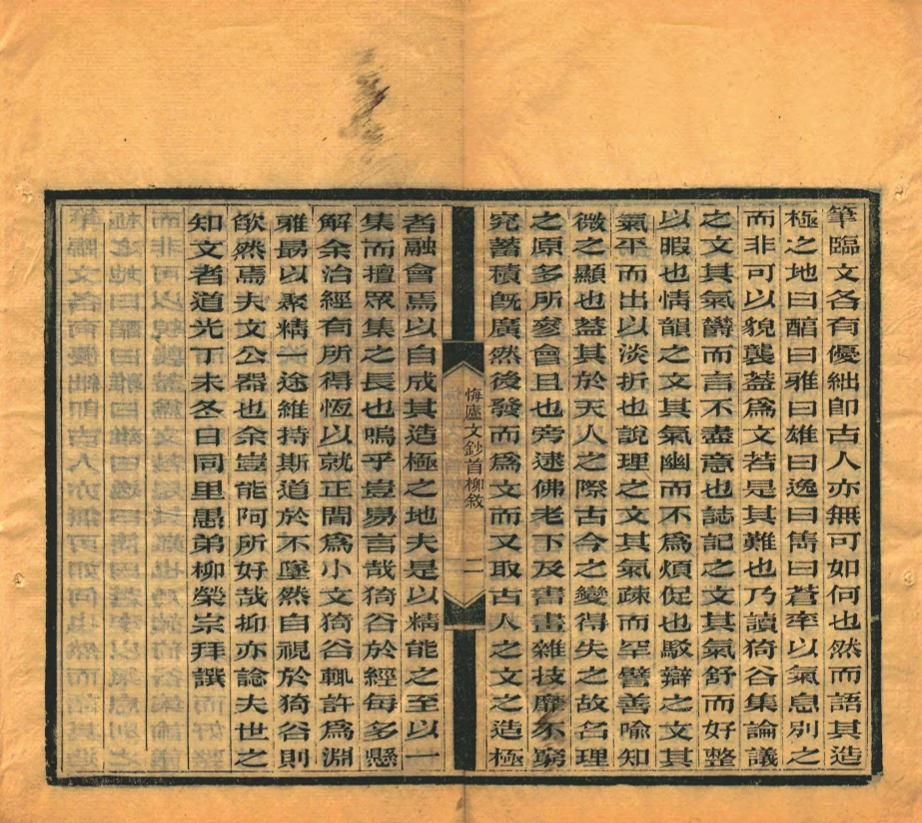 筆臨文各有優絀卽古人亦無可如何也然而語其造
極之地曰醇曰雅曰雄曰逸曰雋曰蒼率以氣息別之
而非可以貌襲葢爲文若是其難也乃讀猗谷集論議
之文其氣鬱而言不盡意也誌記之文其氣舒而好整
以暇也情韻之文其氣幽而不爲煩促也駁辯之文其
氣平而出以淡折也說理之文其氣疎而罕譬善喩知
微之顯也葢其於天人之際古今之變得失之故名理
之原多所參會且也旁逮佛老下及書畫雜技靡不窮
究蓄積旣廣然後發而爲文而又取古人之文之造極
悔廬文鈔首柳敘
二
者融會焉以自成其造極之地夫是以精能之至以一
集而擅眾集之長也嗚乎豈易言哉猗谷於經每多懸
解余治經有所得恆以就正閒爲小文猗谷輒許爲淵
雅最以聚精一途維持斯道於不墜然自視於猗谷則
欿然焉夫文公器也余豈能阿所好哉抑亦諗夫世之
知文者道光丁未冬日同里愚弟柳榮宗拜譔